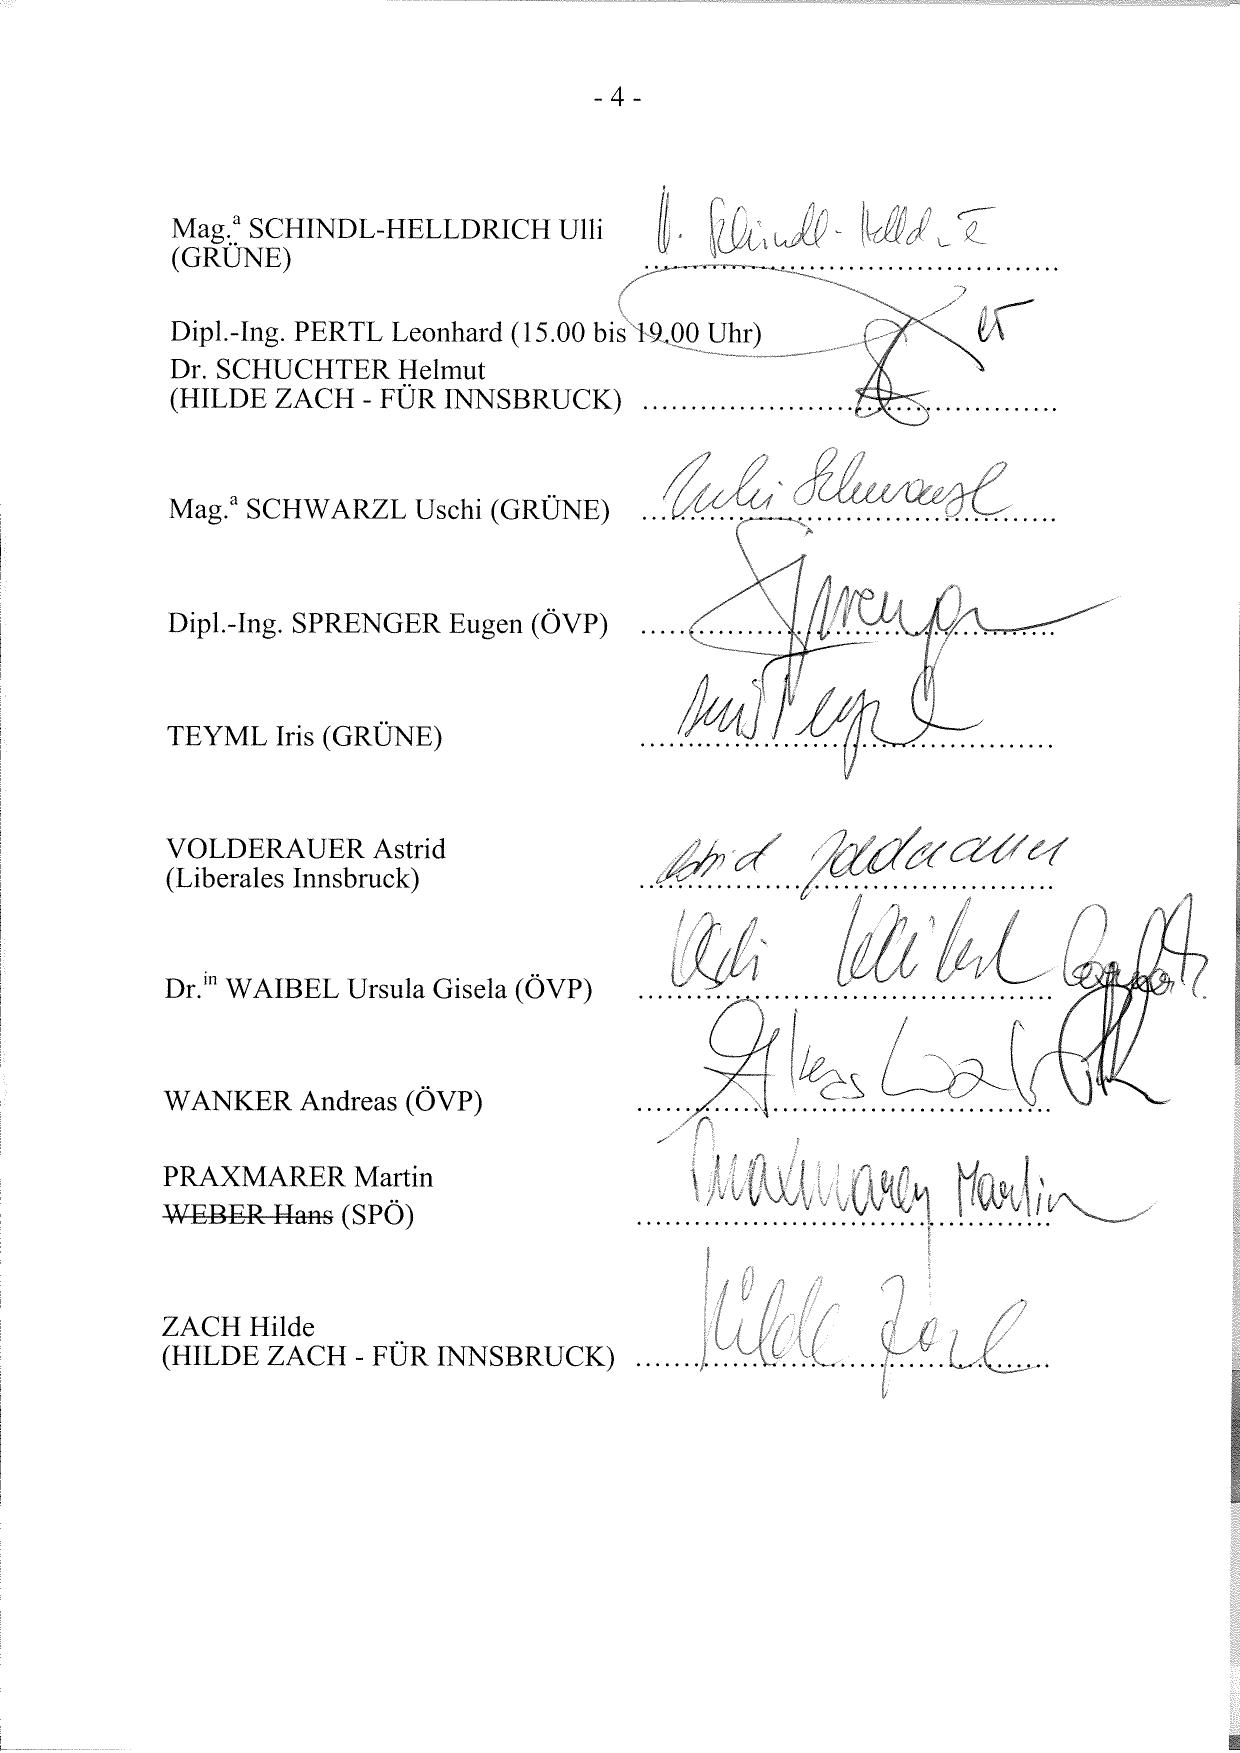 - 4 -
Mag.ª SCHINDL-HELLDRICH Ulli
(GRÜNE)
U. Schindl-Helld
Dipl.-Ing. PERTL Leonhard (15.00 bis 19.00 Uhr)
Dr. SCHUCHTER Helmut
(HILDE ZACH - FÜR INNSBRUCK)
Mag.ª SCHWARZL Uschi (GRÜNE)
Uschi Schwarzl
Dipl.-Ing. SPRENGER Eugen (ÖVP)
Sprenger
TEYML Iris (GRÜNE)
Iris Teyml
VOLDERAUER Astrid
(Liberales Innsbruck)
Astrid Volderauer
Dr.ⁱⁿ WAIBEL Ursula Gisela (ÖVP)
Uschi Waibel
WANKER Andreas (ÖVP)
PRAXMARER Martin
WEBER Hans (SPÖ)
Praxmarer Martin
ZACH Hilde
(HILDE ZACH - FÜR INNSBRUCK)
Hilde Zach